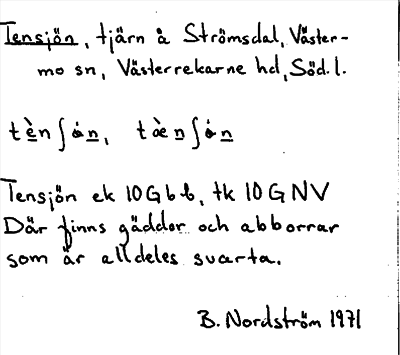 Tensjön, tjärn å Strömsdal, Väster-
mo sn, Västerrekarne hd, Söd. l.
tènʃȯn, tæ̀nʃȯn
Tensjön ek 10G b b, tk 10 G NV
Där finns gäddor och abborrar
som är alldeles svarta.
B. Nordström 1971